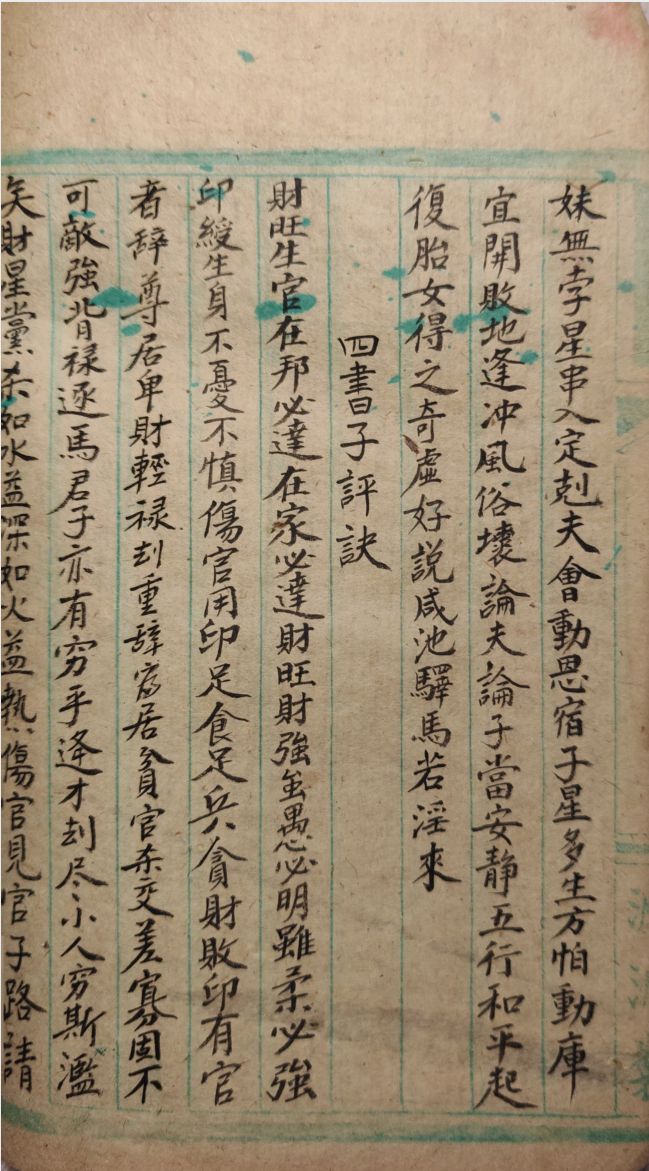 妹無孛星串入定剋夫會動恩宿子星多生方怕動庫
宜開敗地逢冲風俗壞論夫論子當安静五行和平起
復胎女得之奇虛好説咸池驛馬若淫來
四書子評訣
財旺生官在邦必達在家必達財旺財強虽愚必明雖柔必強
印綬生身不憂不慎傷官用印足食足兵貪財敗印有官
者辭尊居卑財輕禄刦重辭富居貧官杀交差寡固不
可敵強背禄逐馬君子亦有穷乎逢才刦尽小人穷斯濫
矣財星黨杀如水益深如火益熱傷官見官子路請